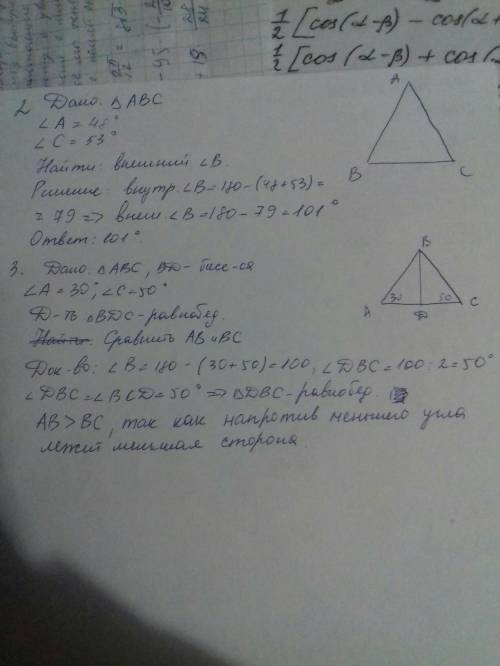 1/2 [cos(α-β) - cos(α+
1/2 [cos(α-β) + cos(α
-95
+19
28/24
2 Дано: △ABC
∠A = 48°
∠C = 53°
Найти: внешний ∠B.
Решение: внутр. ∠B = 180 - (48+53) =
= 79 => внеш. ∠B = 180 - 79 = 101°
Ответ: 101°.
A
B
C
3. Дано: △ABC, BD - бисс-са
∠A = 30°, ∠C = 50°
Д-ть △BDC - равнобед.
Найти: Сравнить AB и BC
Док-во: ∠B = 180 - (30+50) = 100, ∠DBC = 100 : 2 = 50°
∠DBC = ∠BCD = 50° => △DBC - равнобед.
AB > BC, так как напротив меньшего угла
лежит меньшая сторона
B
A
30
50
C
D